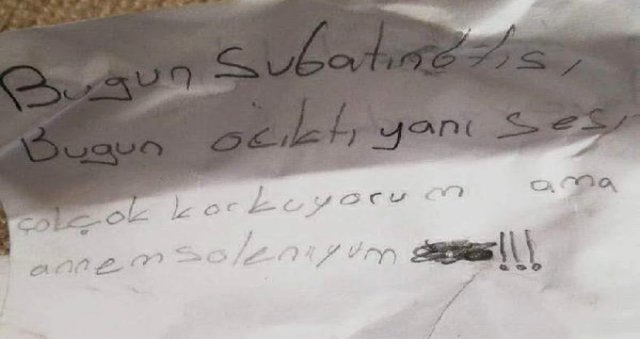 Bugun Subatın 6'sıs,
Bugun o çıktı yanı sesi
çokçok korkuyorum ama
annem soleniyum !!!